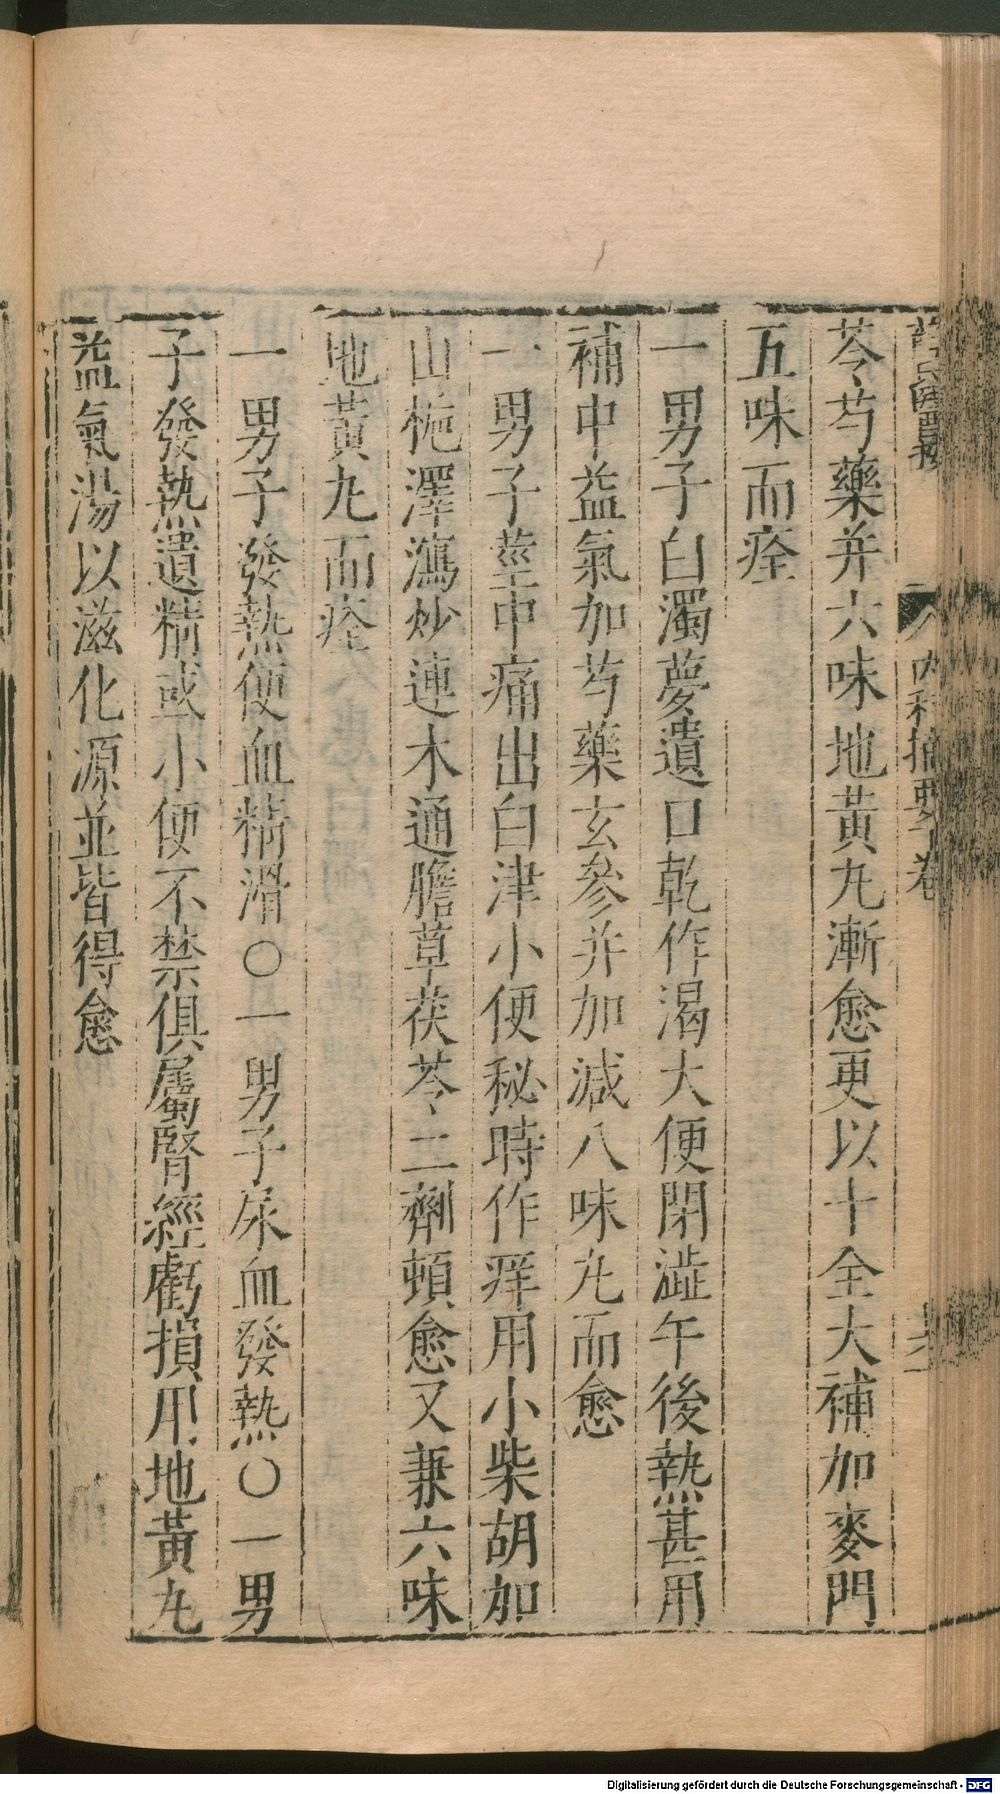 內科摘要下卷
芩芍藥并六味地黃丸漸愈更以十全大補加麥門
五味而痊
一男子白濁夢遺口乾作渴大便閉澁午後熱甚用
補中益氣加芍藥玄參并加減八味丸而愈
一男子莖中痛出白津小便秘時作痒用小柴胡加
山梔澤瀉炒連木通膽草茯苓二劑頓愈又兼六味
地黃丸而痊
一男子發熱便血精滑〇一男子尿血發熱〇一男
子發熱遺精或小便不禁俱屬腎經虧損用地黃丸
益氣湯以滋化源並皆得愈
Digitalisierung gefördert durch die Deutsche Forschungsgemeinschaft - DFG